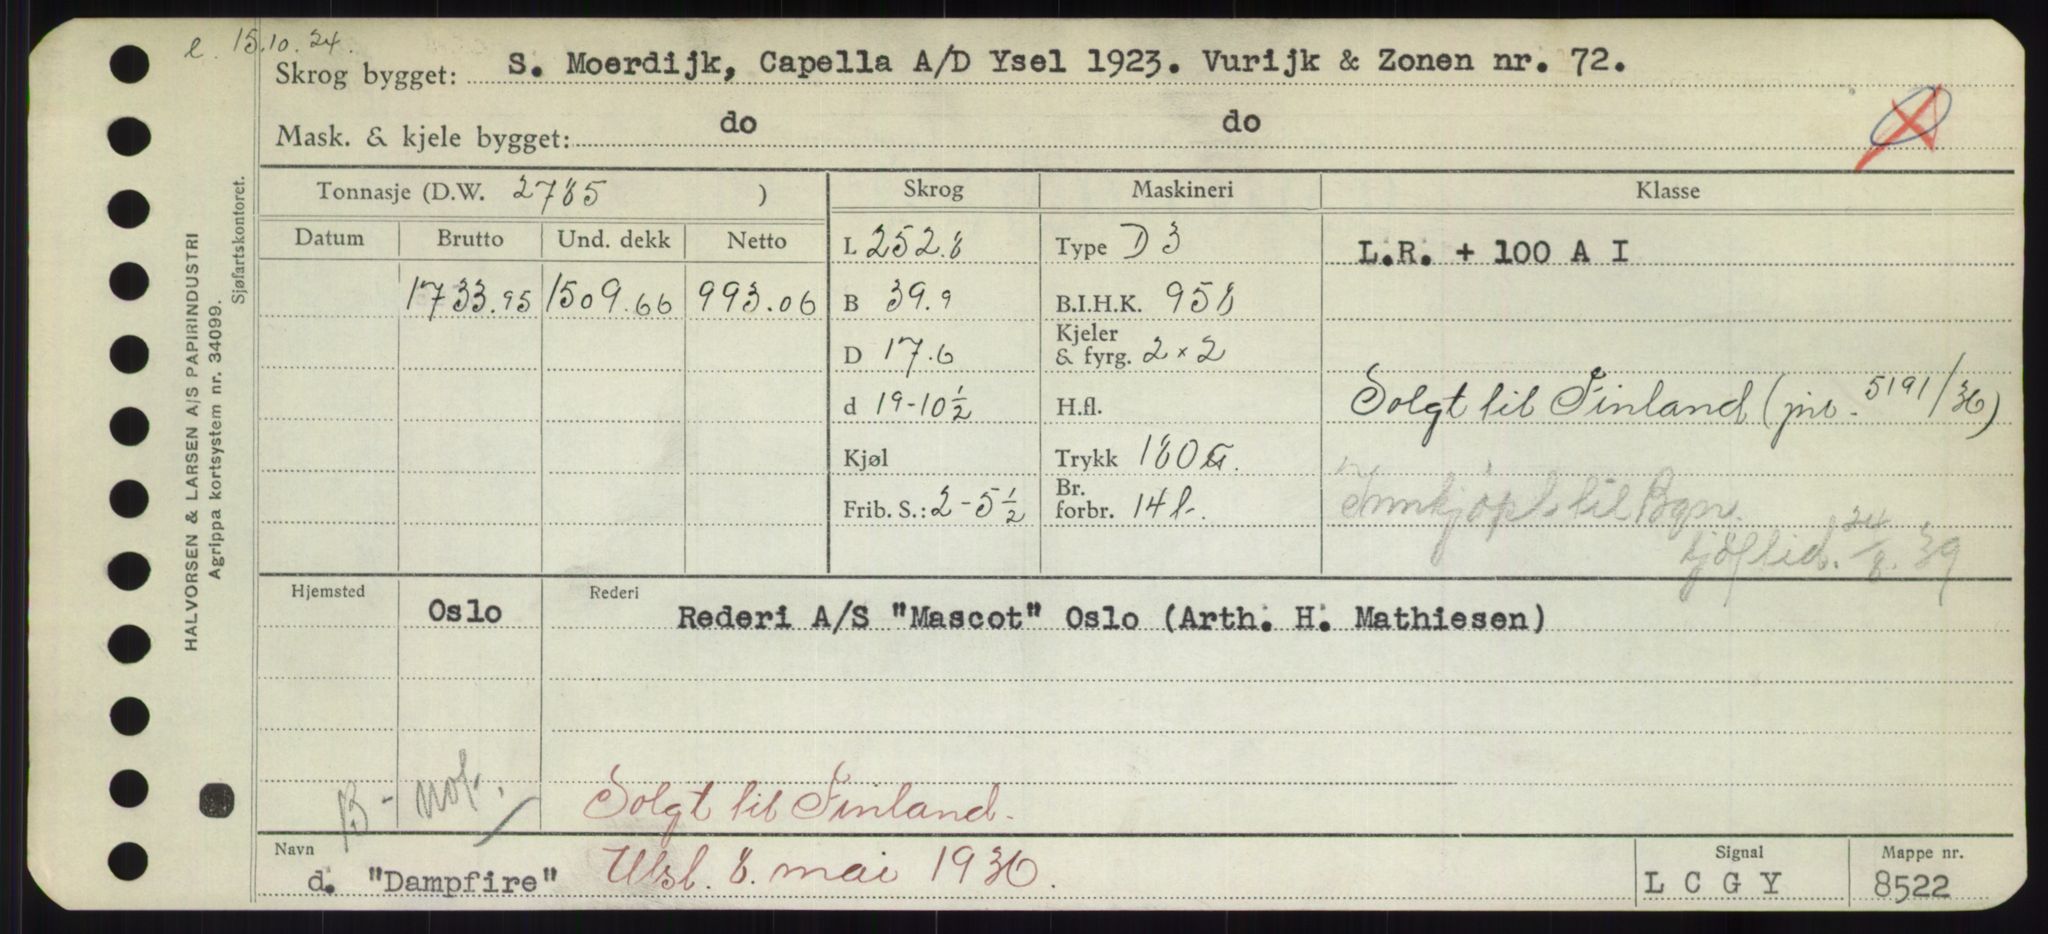 e. 15.10.24.
Skrog bygget: S. Moerdijk, Capella A/D Ysel 1923. Vurijk & Zonen nr. 72.
Mask. & kjele bygget: do do
Tonnasje (D.W. 2785 )
Skrog
Maskineri
Klasse
Datum Brutto Und. dekk Netto
1733.95 1509.66 993.06
L 252.8
B 39.9
D 17.6
d 19-10½
Kjøl
Frib. S.: 2-5½
Type D 3
B.I.H.K. 958
Kjeler
& fyrg. 2 x 2
H.fl.
Trykk 180
Br.
forbr. 14 t.
L.R. + 100 A I
Solgt til Finland (jnr. 5191/36)
Innkjøpt til Bgn.
24/8.39
Hjemsted
Rederi
Oslo Rederi A/S "Mascot" Oslo (Arth. H. Mathiesen)
B - not.
Solgt til Finland.
Navn
d. "Dampfire" Utsl. 8. mai 1936.
Signal
L C G Y
Mappe nr.
8522
HALVORSEN & LARSEN A/S PAPIRINDUSTRI
Agrippa kortsystem nr. 34099.
Sjøfartskontoret.